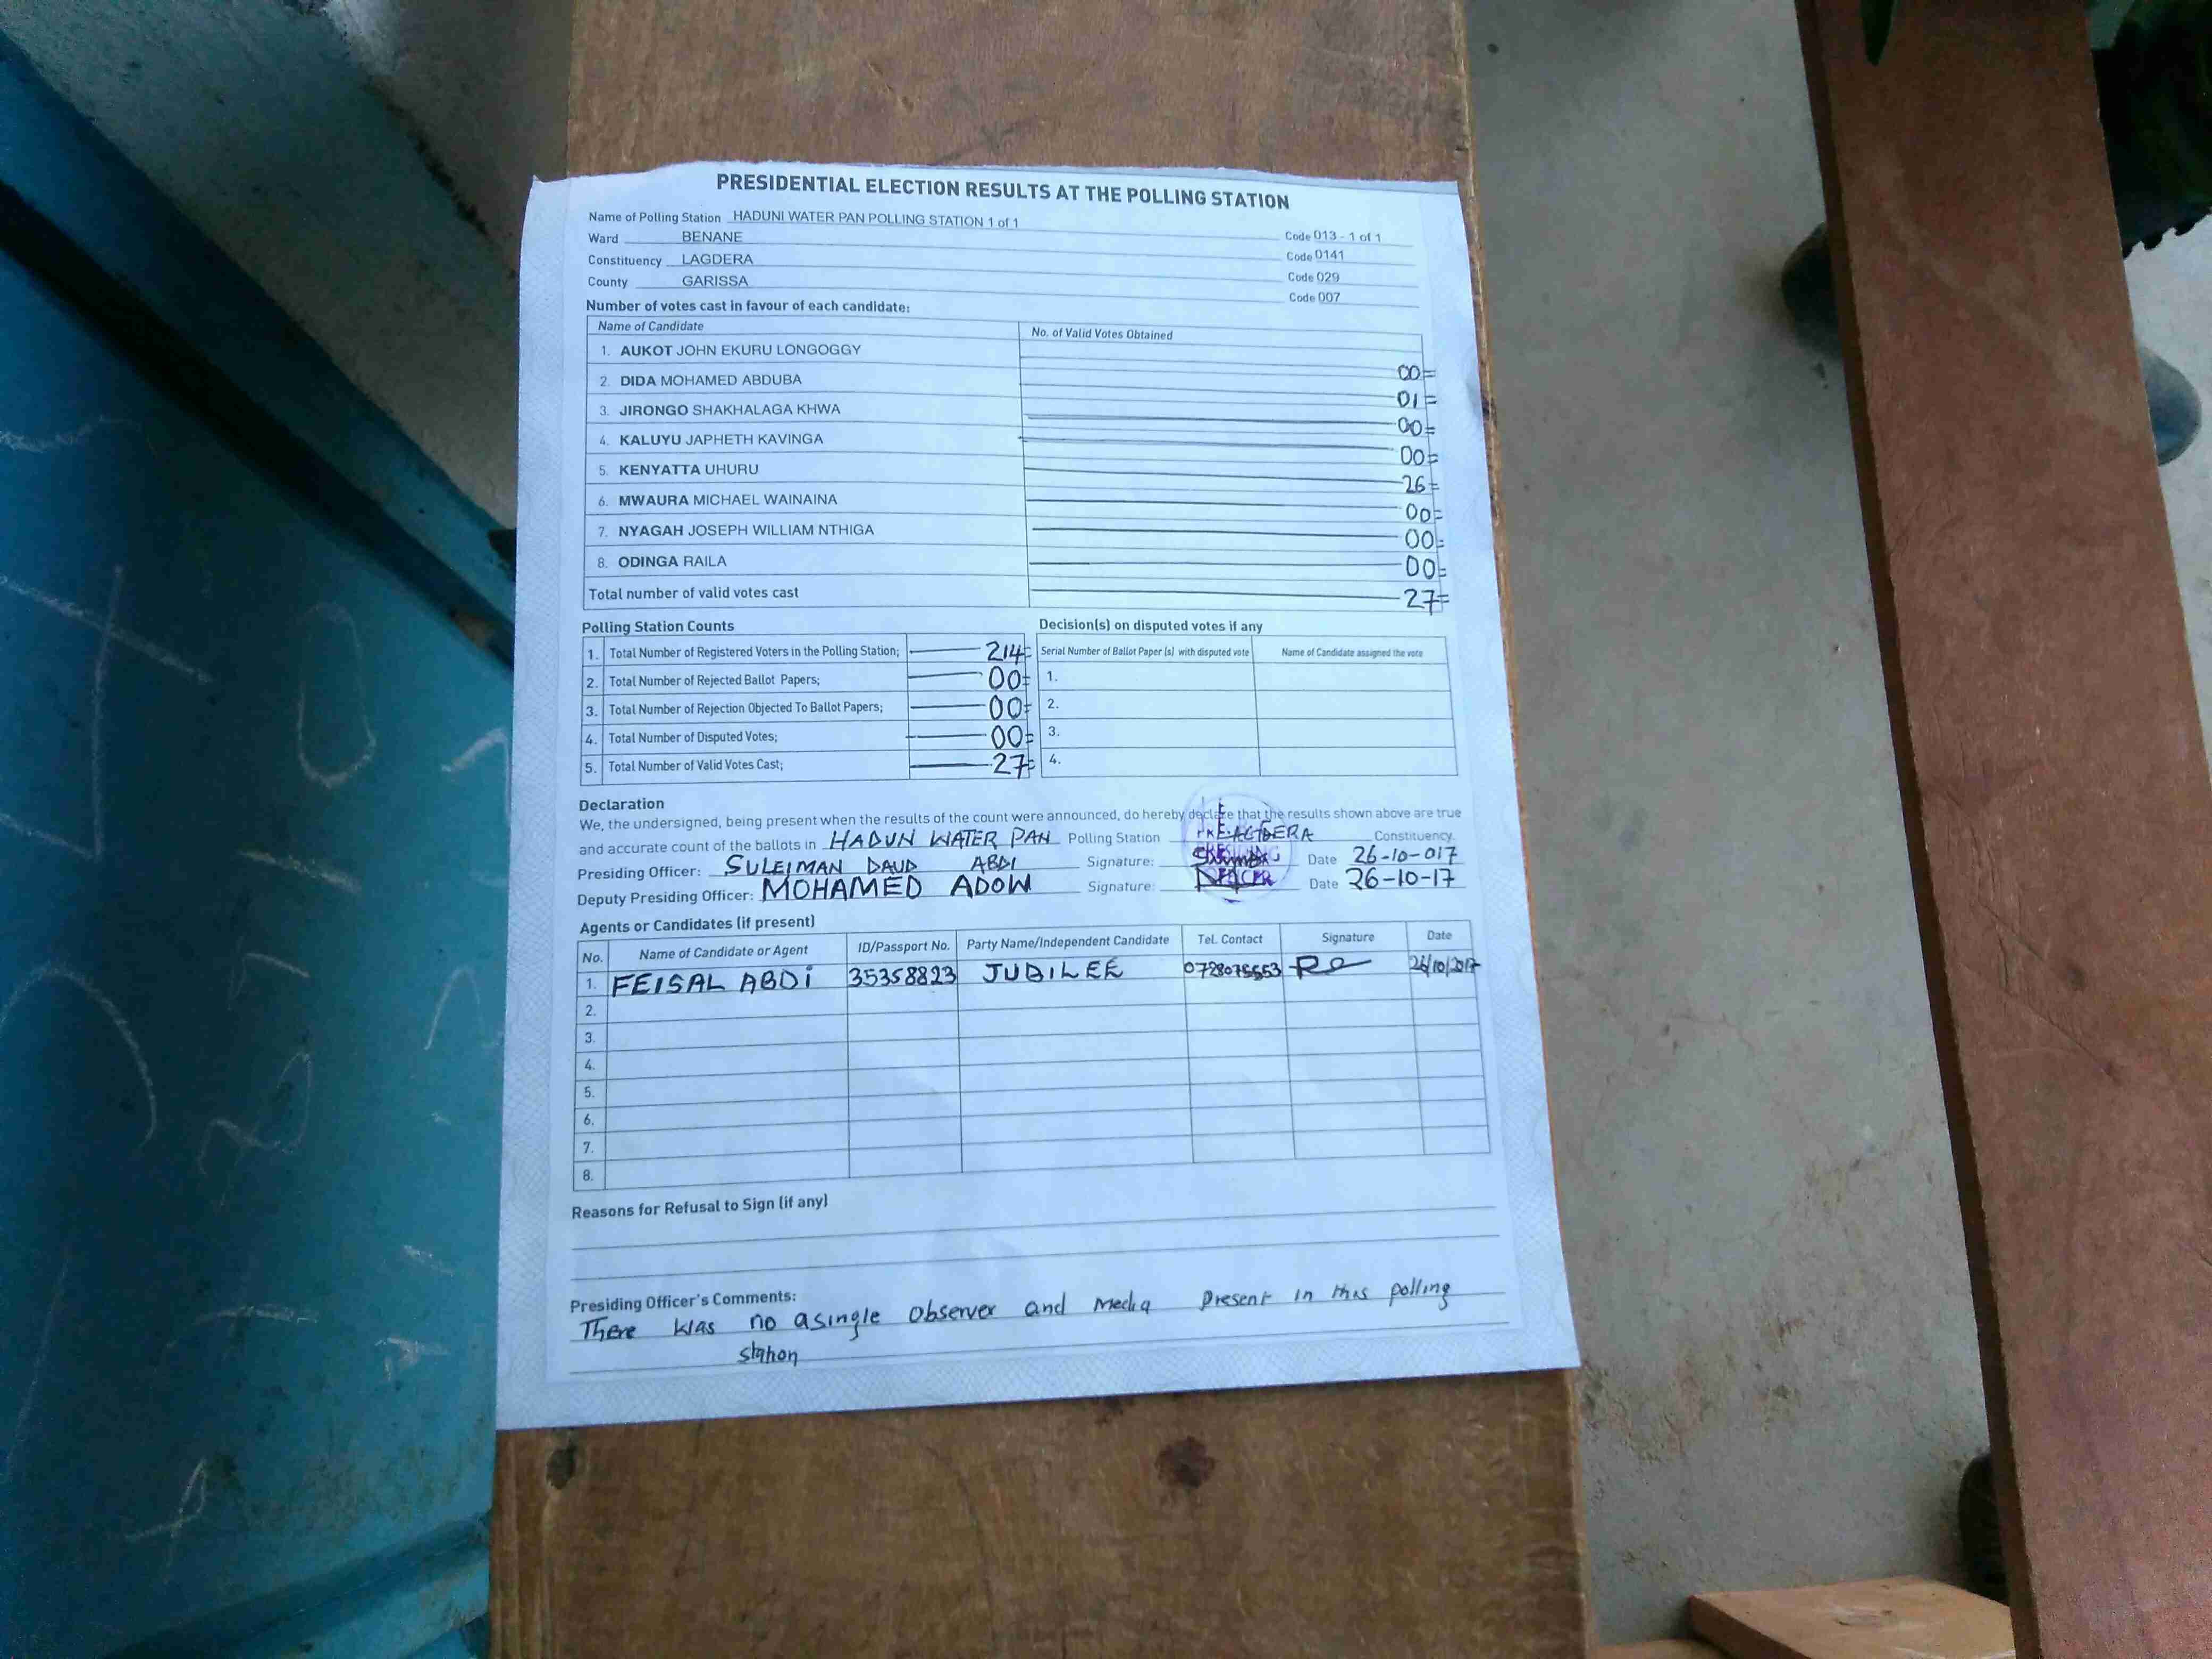 PRESIDENTIAL ELECTION RESULTS AT THE POLLING STATION
Name of Polling Station HADUNI WATER PAN POLLING STATION 1 of 1
Code 013 - 1 of 1
Ward BENANE
Code 0141
Constituency LAGDERA
Code 029
County GARISSA
Code 007
Number of votes cast in favour of each candidate:
Name of Candidate No. of Valid Votes Obtained
1. AUKOT JOHN EKURU LONGOGGY 00=
2. DIDA MOHAMED ABDUBA 01=
3. JIRONGO SHAKHALAGA KHWA 00=
4. KALUYU JAPHETH KAVINGA 00=
5. KENYATTA UHURU 26=
6. MWAURA MICHAEL WAINAINA 00=
7. NYAGAH JOSEPH WILLIAM NTHIGA 00=
8. ODINGA RAILA 00=
Total number of valid votes cast 27=
Polling Station Counts
1. Total Number of Registered Voters in the Polling Station; 214=
2. Total Number of Rejected Ballot Papers; 00=
3. Total Number of Rejection Objected To Ballot Papers; 00=
4. Total Number of Disputed Votes; 00=
5. Total Number of Valid Votes Cast; 27=
Decision(s) on disputed votes if any
Serial Number of Ballot Paper (s) with disputed vote Name of Candidate assigned the vote
1.
2.
3.
4.
Declaration
We, the undersigned, being present when the results of the count were announced, do hereby declare that the results shown above are true
and accurate count of the ballots in HADUN WATER PAN Polling Station Constituency.
Presiding Officer: SULEIMAN DAUD ABDI Signature: Date 26-10-017
Deputy Presiding Officer: MOHAMED ADOW Signature: Date 26-10-17
Agents or Candidates (if present)
No. Name of Candidate or Agent ID/Passport No. Party Name/Independent Candidate Tel. Contact Signature Date
1. FEISAL ABDI 35358823 JUBILEE 26/10/2017
2.
3.
4.
5.
6.
7.
8.
Reasons for Refusal to Sign (if any)
Presiding Officer's Comments:
There was no asingle observer and media present in this polling
station